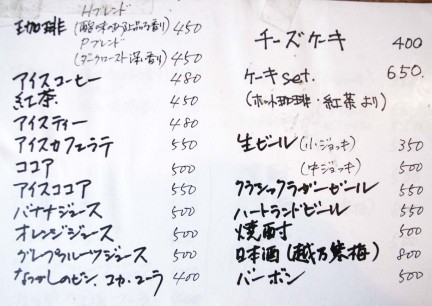 Hブレンド
珈琲 (酸味のある上品な香り) 450
Pブレンド
(ダークロースト深い香り) 450
アイスコーヒー 480
紅茶 450
アイスティー 480
アイスカフェラテ 550
ココア 500
アイスココア 550
バナナジュース 500
オレンジジュース 500
グレープフルーツジュース 500
なつかしのビン、コカ・コーラ 400
チーズケーキ 400
ケーキset. 650.
(ホット珈琲・紅茶より)
生ビール (小ジョッキ) 350
(中ジョッキ) 500
クラシックラガービール 550
ハートランドビール 550
焼酎 500
日本酒(越乃寒梅) 800
バーボン 500